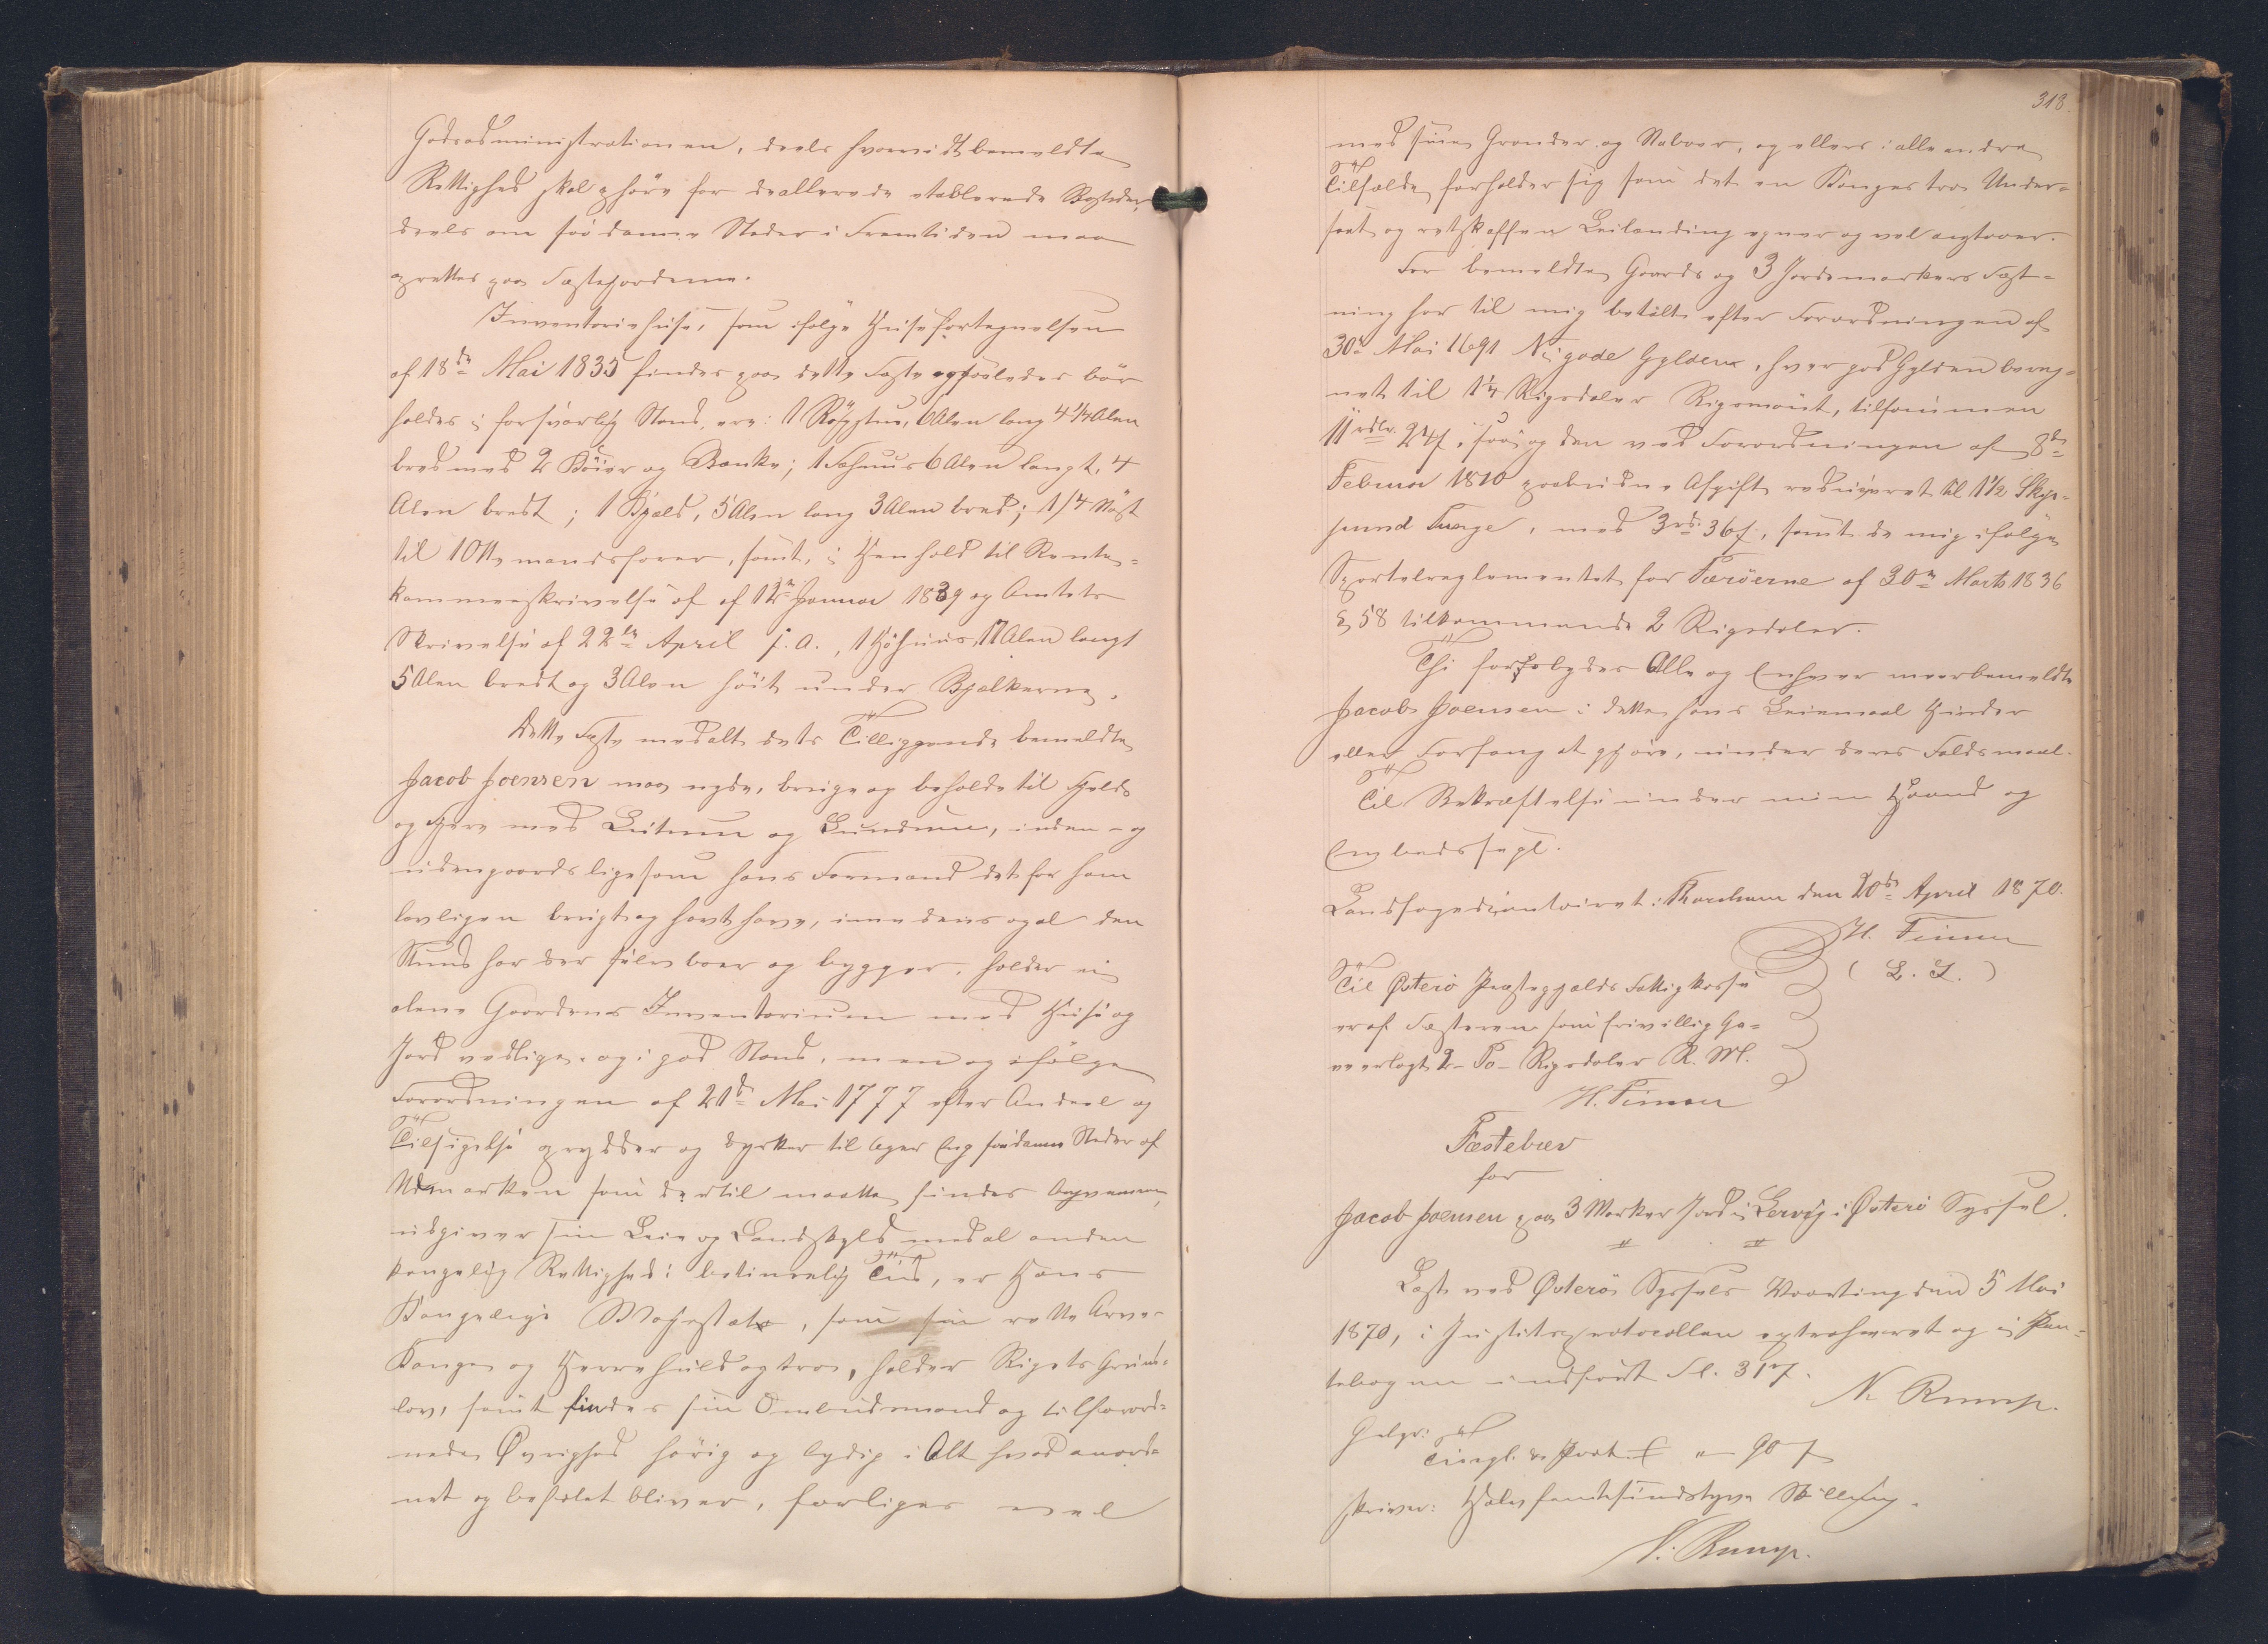 Godsadministrationen, deels hvorvidt bemeldte
Rettighed skal ophöre for de allerede etablerede Bosteder,
deels om saadanne Steder i Fremtiden maa
oprettes paa Fæstejorderne.
Inventariehuse, som ifølge Huusefortegnelsen
af 18de Mai 1835 findes paa dette Fæste og saaledes bör
holdes i forsvarlig Stand, ere: 1 Rögstue, 6 Alen lang 4 1/4 Alen
bred med 2 Döier og Bænke; 1 Fæhuus 6 Alen langt, 4
Alen bredt; 1 Hjald, 5 Alen lang 3 Alen bred; 1/4 Nöst
til 1 Ottemandsfarer, samt, i Henhold til Rente-
kammerskrivelse af af 12te Januar 1839 og Amtets
Skrivelse af 22de April s. A., 1 Höhuus, 17 Alen langt
5 Alen bredt og 3 Alen höit under Bjælkerne.
Dette Fæste med alt dets Tilliggende bemeldte
Jacob Joensen maa nyde, bruge og beholde til Fjelds
og Fjære med Luttum og Lundum, inden- og
udengaards ligesom hans Formand det for ham
lovligen brugt og havt have, imedens og al den
Stund han der selv boer og bygger, holder ei
alene Gaardens Inventarium med Huse og
Jord vedlige, og i god Stand, men og ifølge
Forordningen af 21de Mai 1777 efter Andeel og
Tilsigelse oprydder og dyrker til Ager Eng saadanne Steder af
Udmarken som dertil maatte findes beqvemme,
udgiver sin Leie og Landskyld med al anden
kongelig Rettighed i betimelig Tiid, er Hans
Kongelige Majestæt, som sin rette Arve-
Konge og Herre huld og tro, holder Rigets Grund-
lov, samt findes sin Ombudsmand og tilforord-
nede Øvrighed hørig og lydig i Alt hvad anord-
net og befalet bliver, forliges vel
318.
med sine Grander og Naboer, og ellers i alle andre
Tilfælde forholder sig som det en Konges tro Under-
saat og retskaffen Leilænding egner og vel anstaaer.
For bemeldte Gaards og 3 Jordemarkers Fæst-
ning har til mig betalt efter Forordningen af
30te Mai 1691 Ni gode Gylden, hver god Gylden bereg-
net til 1 1/4 Rigsdaler Rigsmönt, tilsammen
11 rdlr. 24 ß, saa og den ved Forordningen af 8de
Februar 1810 paabudne Afgift reduceret til 1 1/2 Skip-
pund Tunge, med 3 rd. 36 ß, samt de mig ifølge
Sportelreglementet for Færöerne af 30te Marts 1836
§ 58 tilkommende 2 Rigsdaler.
Thi forbydes Alle og Enhver meerbemeldte
Jacob Joensen i dette hans Leiemaal Hinder
eller Forfang at gjöre, under deres Faldsmaal.
Til Bekræftelse under min Haand og
Embedssegl.
Landfogedcontoiret i Thorshavn den 20de April 1870.
H. Finsen
(L. S.)
Til Østerö Præstegjælds Fattigkasse
er af Fæsteren som frivillig Ga-
ve erlagt 2 - To - Rigsdaler R. M.
H. Finsen
Fæstebrev
for
Jacob Joensen paa 3 Marker Jord i Lervig i Østerö Syssel.
Læst ved Østerö Syssels Vaarting den 5 Mai
1870, i Justitsprotocollen extraheret og i Pan-
tebogen indfört Fl. 317.
N. Rump.
Gebyr:
Tingl. & Prot. " 90 ß
skriver: Halvfemtesindstyve Skilling.
N. Rump.